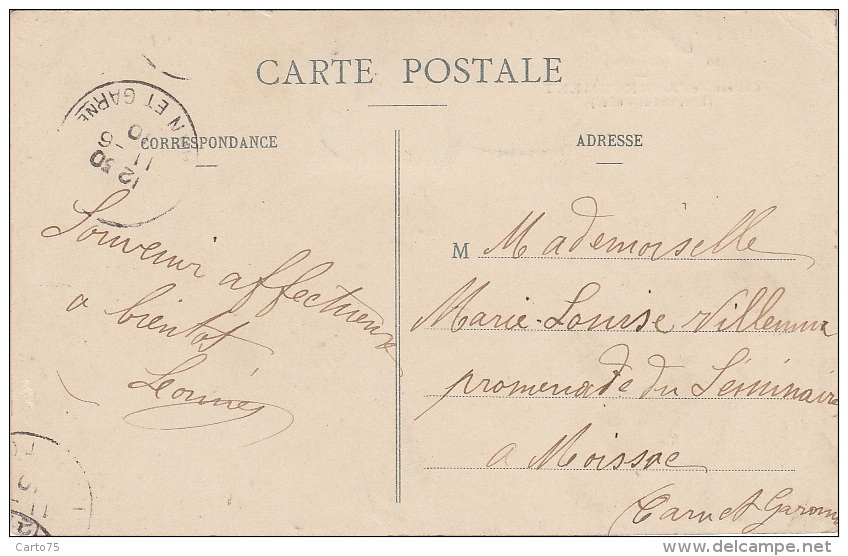 CARTE POSTALE
CORRESPONDANCE
ADRESSE
N ET GARNE
12 30
11 -6
10
Souvenir affectueux
a bientot
M Mademoiselle
Marie-Louise Villemur
promenade du Séminaire
a Moissac
Tarn et Garonne
Carto75
delcampe.net